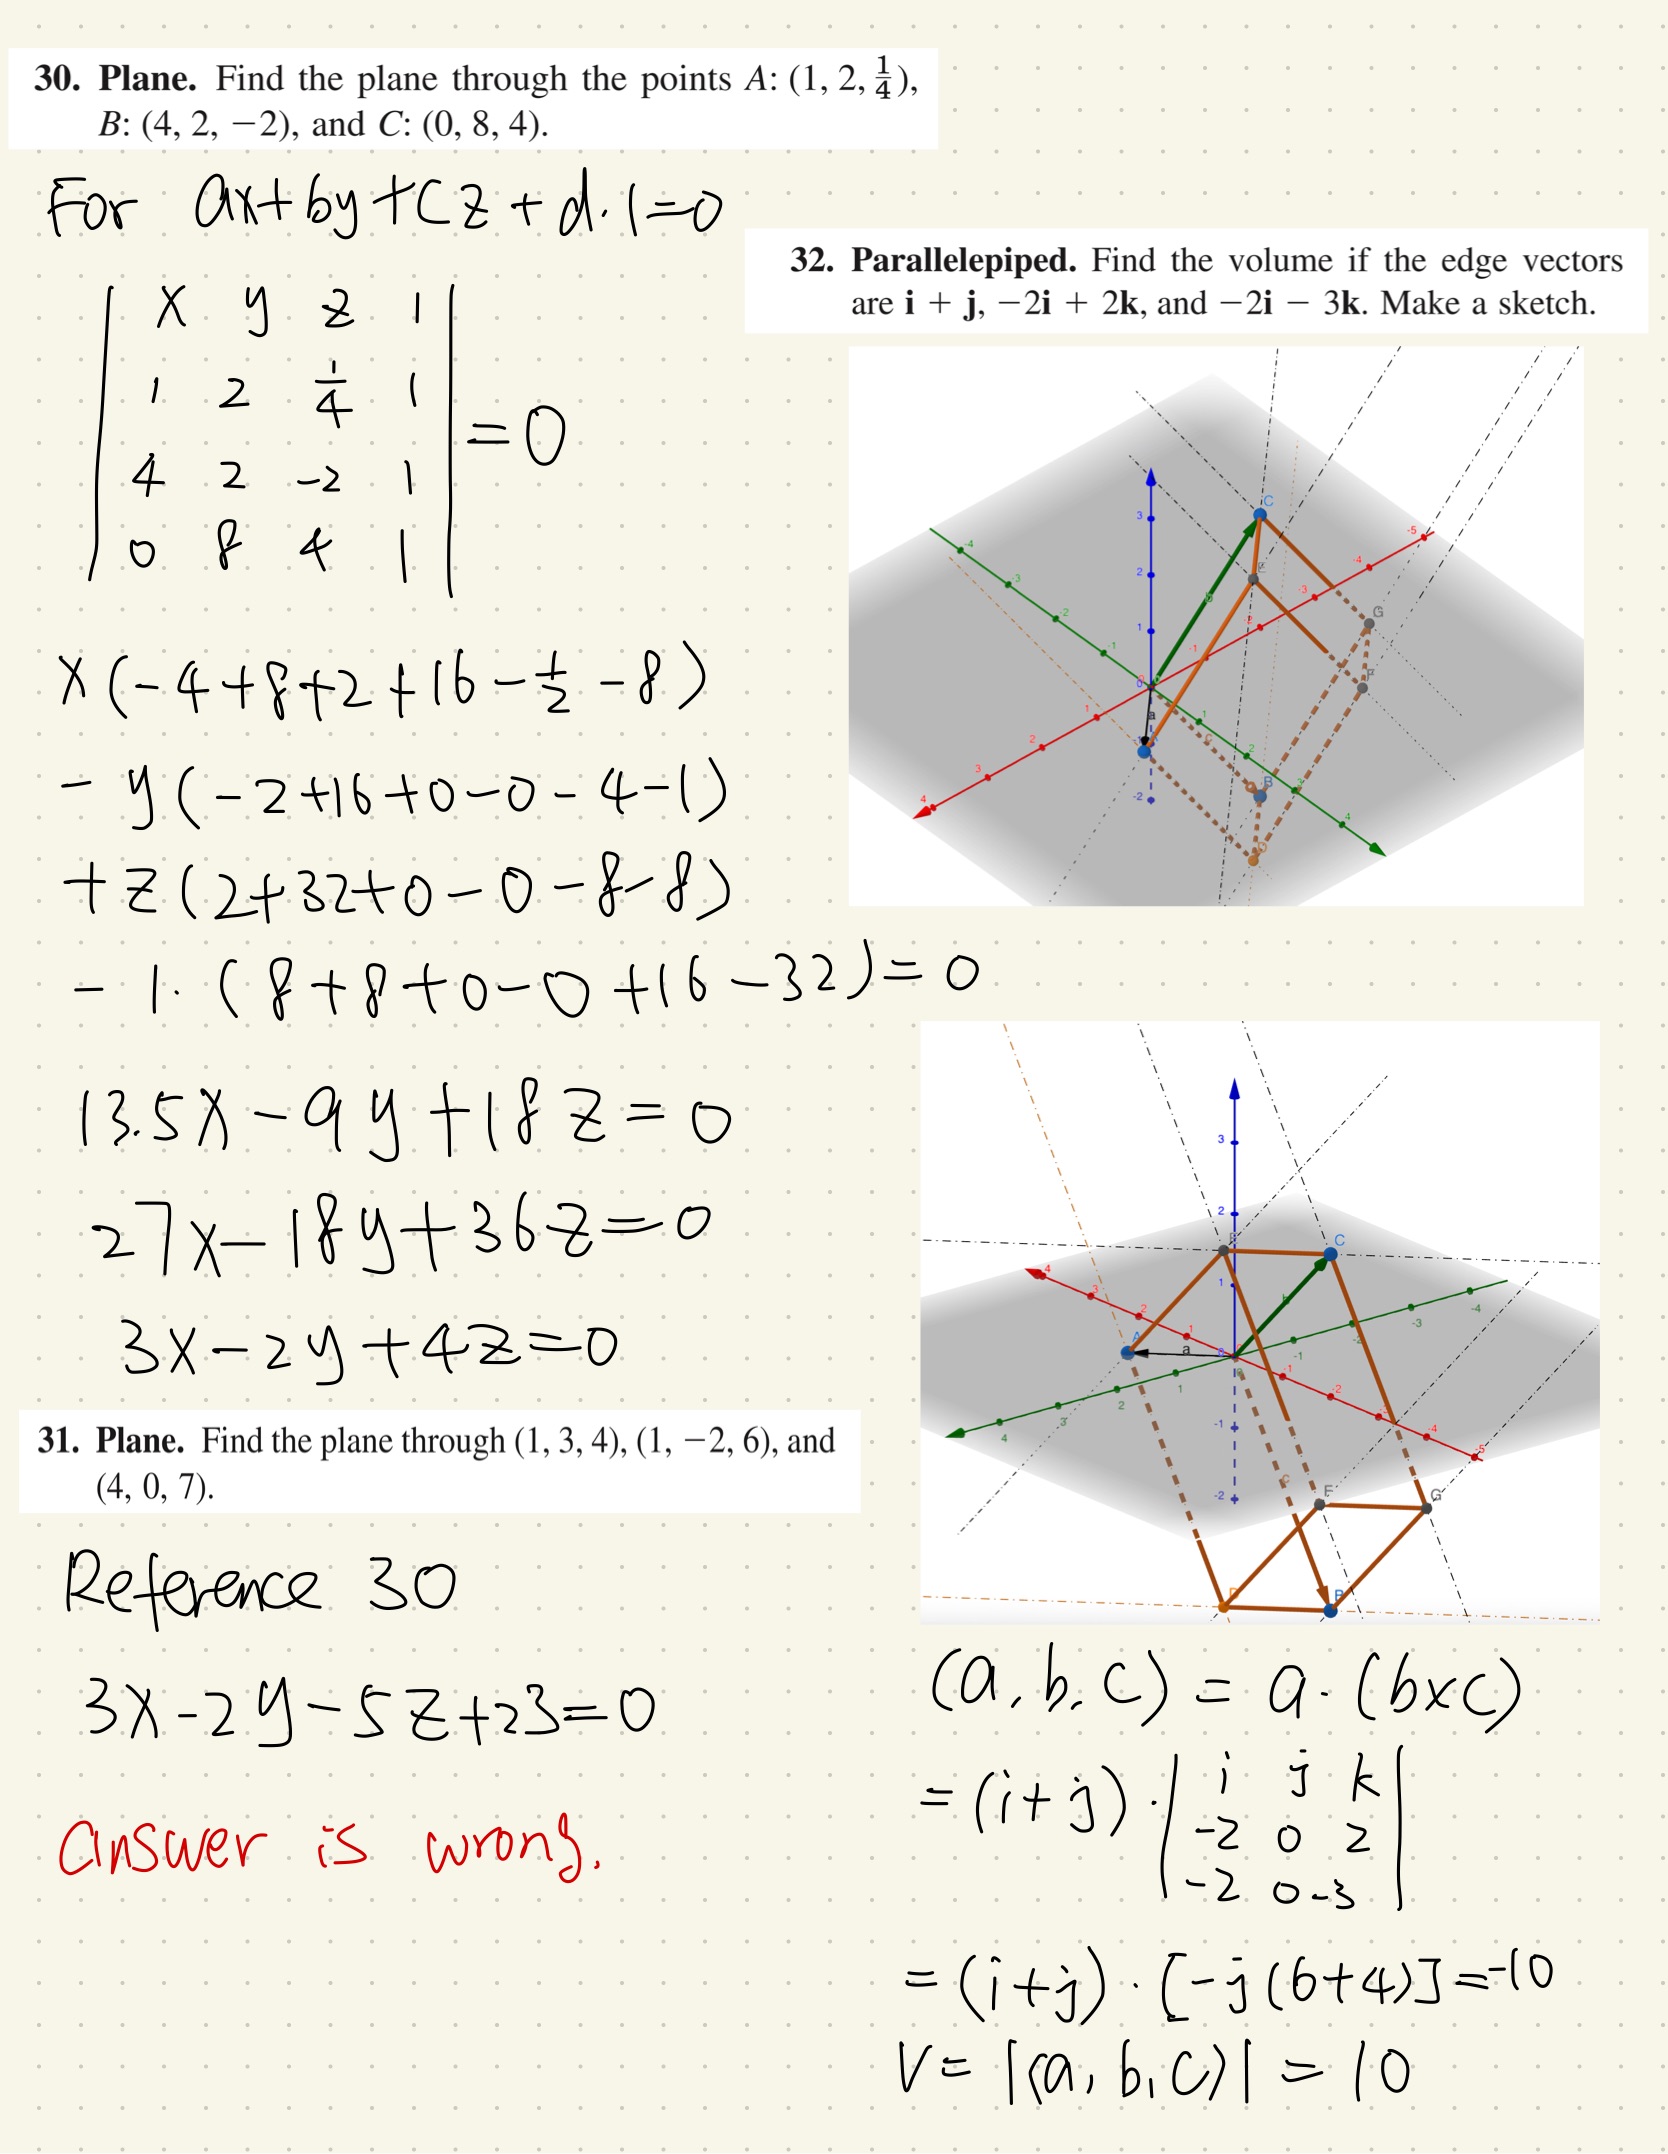 30. Plane. Find the plane through the points A: (1, 2, 1/4),
B: (4, 2, −2), and C: (0, 8, 4).
For ax+by+cz+d·1=0
| x y z 1 |
| 1 2 1/4 1 |
| 4 2 -2 1 | =0
| 0 8 4 1 |
x(-4+8+2+16-1/2-8)
-y(-2+16+0-0-4-1)
+z(2+32+0-0-8-8)
-1·(8+8+0-0+16-32)=0
13.5x-9y+18z=0
27x-18y+36z=0
3x-2y+4z=0
31. Plane. Find the plane through (1, 3, 4), (1, −2, 6), and
(4, 0, 7).
Reference 30
3x-2y-5z+23=0
answer is wrong.
32. Parallelepiped. Find the volume if the edge vectors
are i + j, −2i + 2k, and −2i − 3k. Make a sketch.
(a,b,c) = a·(b×c)
=(i+j)·| i j k |
| -2 0 2 |
| -2 0 -3 |
=(i+j)·[-j(6+4)]=-10
V=|(a,b,c)|=10